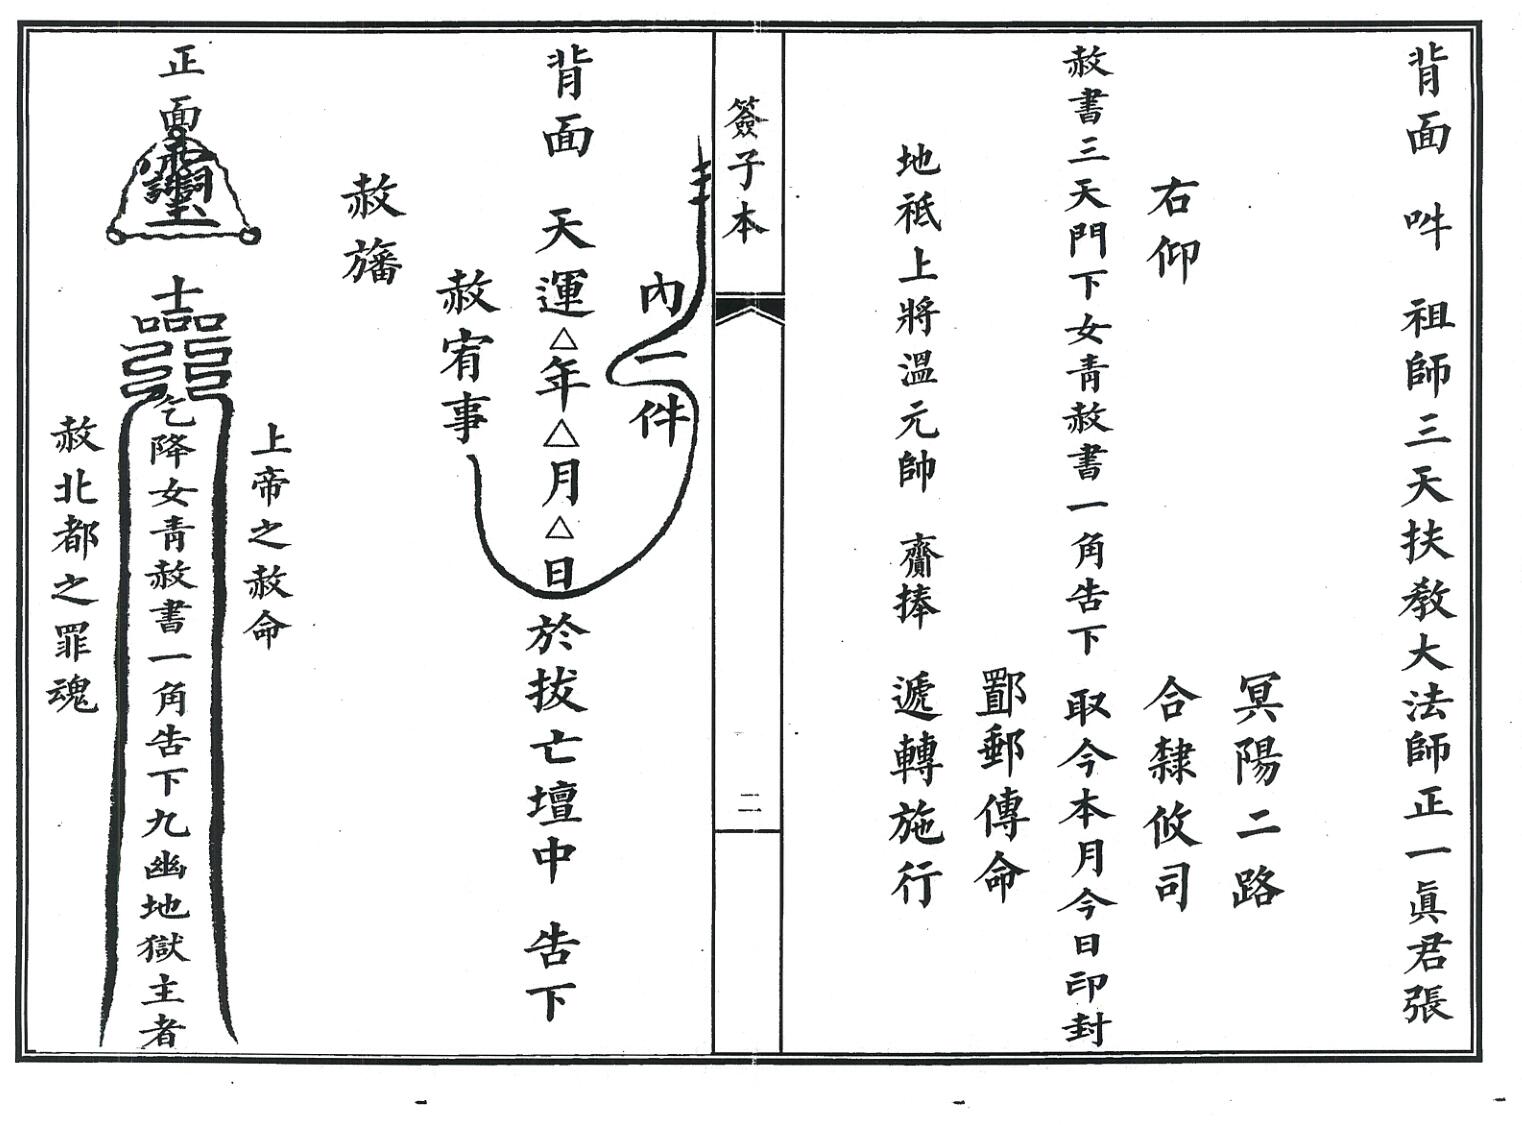 背面 吽 祖師三天扶教大法師正一眞君張
冥陽二路
右仰 合隸攸司
赦書三天門下女青赦書一角告下 取今本月今日印封
郵傳命
地祇上將溫元帥 齎捧 遞轉施行
簽子本 二
內一件
背面 天運△年△月△日於拔亡壇中 告下
赦宥事
赦旛
上帝之赦命
正面
乞降女青赦書一角告下九幽地獄主者
赦北都之罪魂